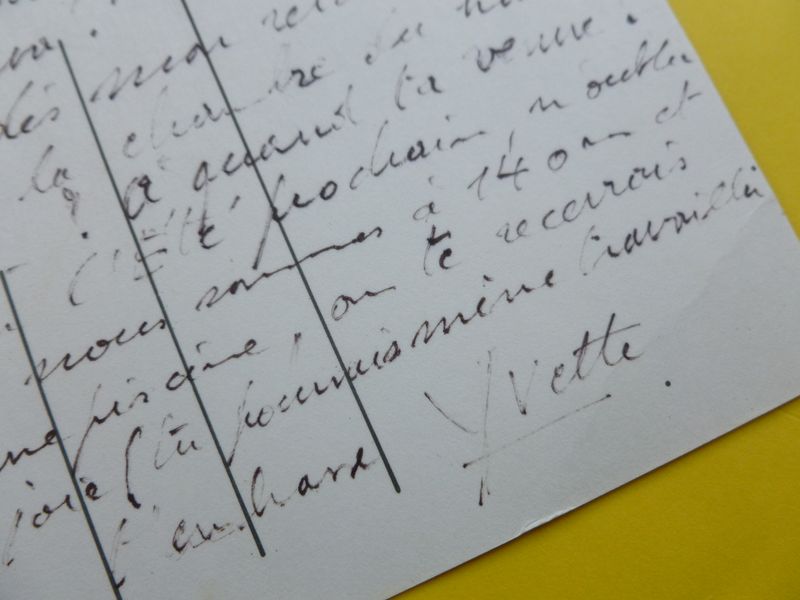 dès mon ret
la chambre du
? à quand ta venue ?
l'été prochain, n'oublie
nous sommes à 14 om et
piscine, on te recevrais
joie (tu pourrais même travailler
t'embrasse Yvette.